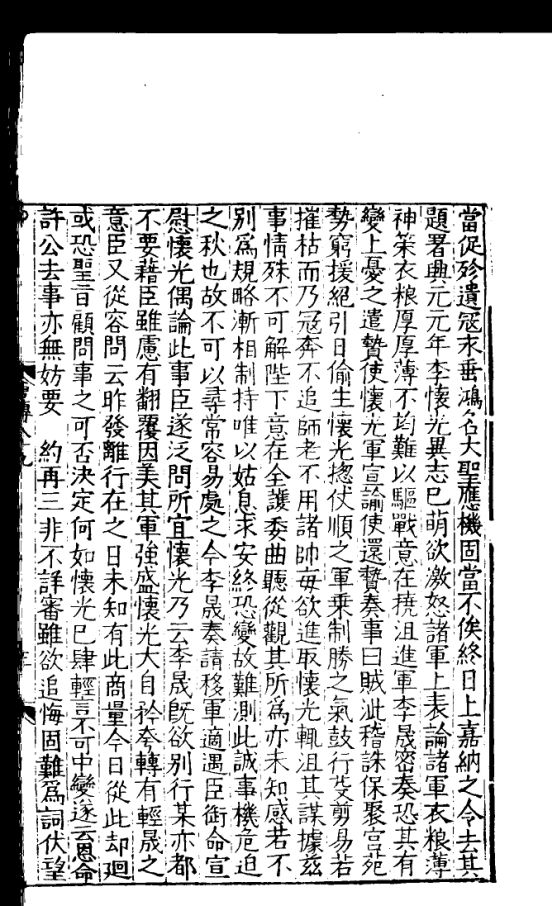 當促殄遺寇永垂鴻名大聖應機固當不俟終日上嘉納之令去其
題署興元元年李懷光異志已萌欲激怒諸軍上表論諸軍衣粮薄
神策衣粮厚厚薄不均難以驅戰意在撓沮進軍李晟密奏恐其有
變上憂之遣贄使懷光軍宣諭使還贄奏事曰賊泚稽誅保聚宮苑
勢窮援絕引日偷生懷光揔仗順之軍乗制勝之氣鼓行芟剪易若
摧枯而乃寇奔不追師老不用諸帥每欲進取懷光輒沮其謀據兹
事情殊不可解陛下意在全護委曲聽從觀其所為亦未知感若不
别為規略漸相制持唯以姑息求安終恐變故難測此誠事機危迫
之秋也故不可以尋常容易處之今李晟奏請移軍適遇臣銜命宣
慰懷光偶論此事臣遂泛問所宜懷光乃云李晟旣欲别行某亦都
不要藉臣雖慮有翻覆因美其軍強盛懷光大自矜夸轉有輕晟之
意臣又從容問云昨發離行在之日未知有此商量今日從此却廻
或恐聖旨顧問事之可否決定何如懷光已肆輕言不可中變遂云恩命
許公去事亦無妨要 約再三非不詳審雖欲追悔固難為詞伏望